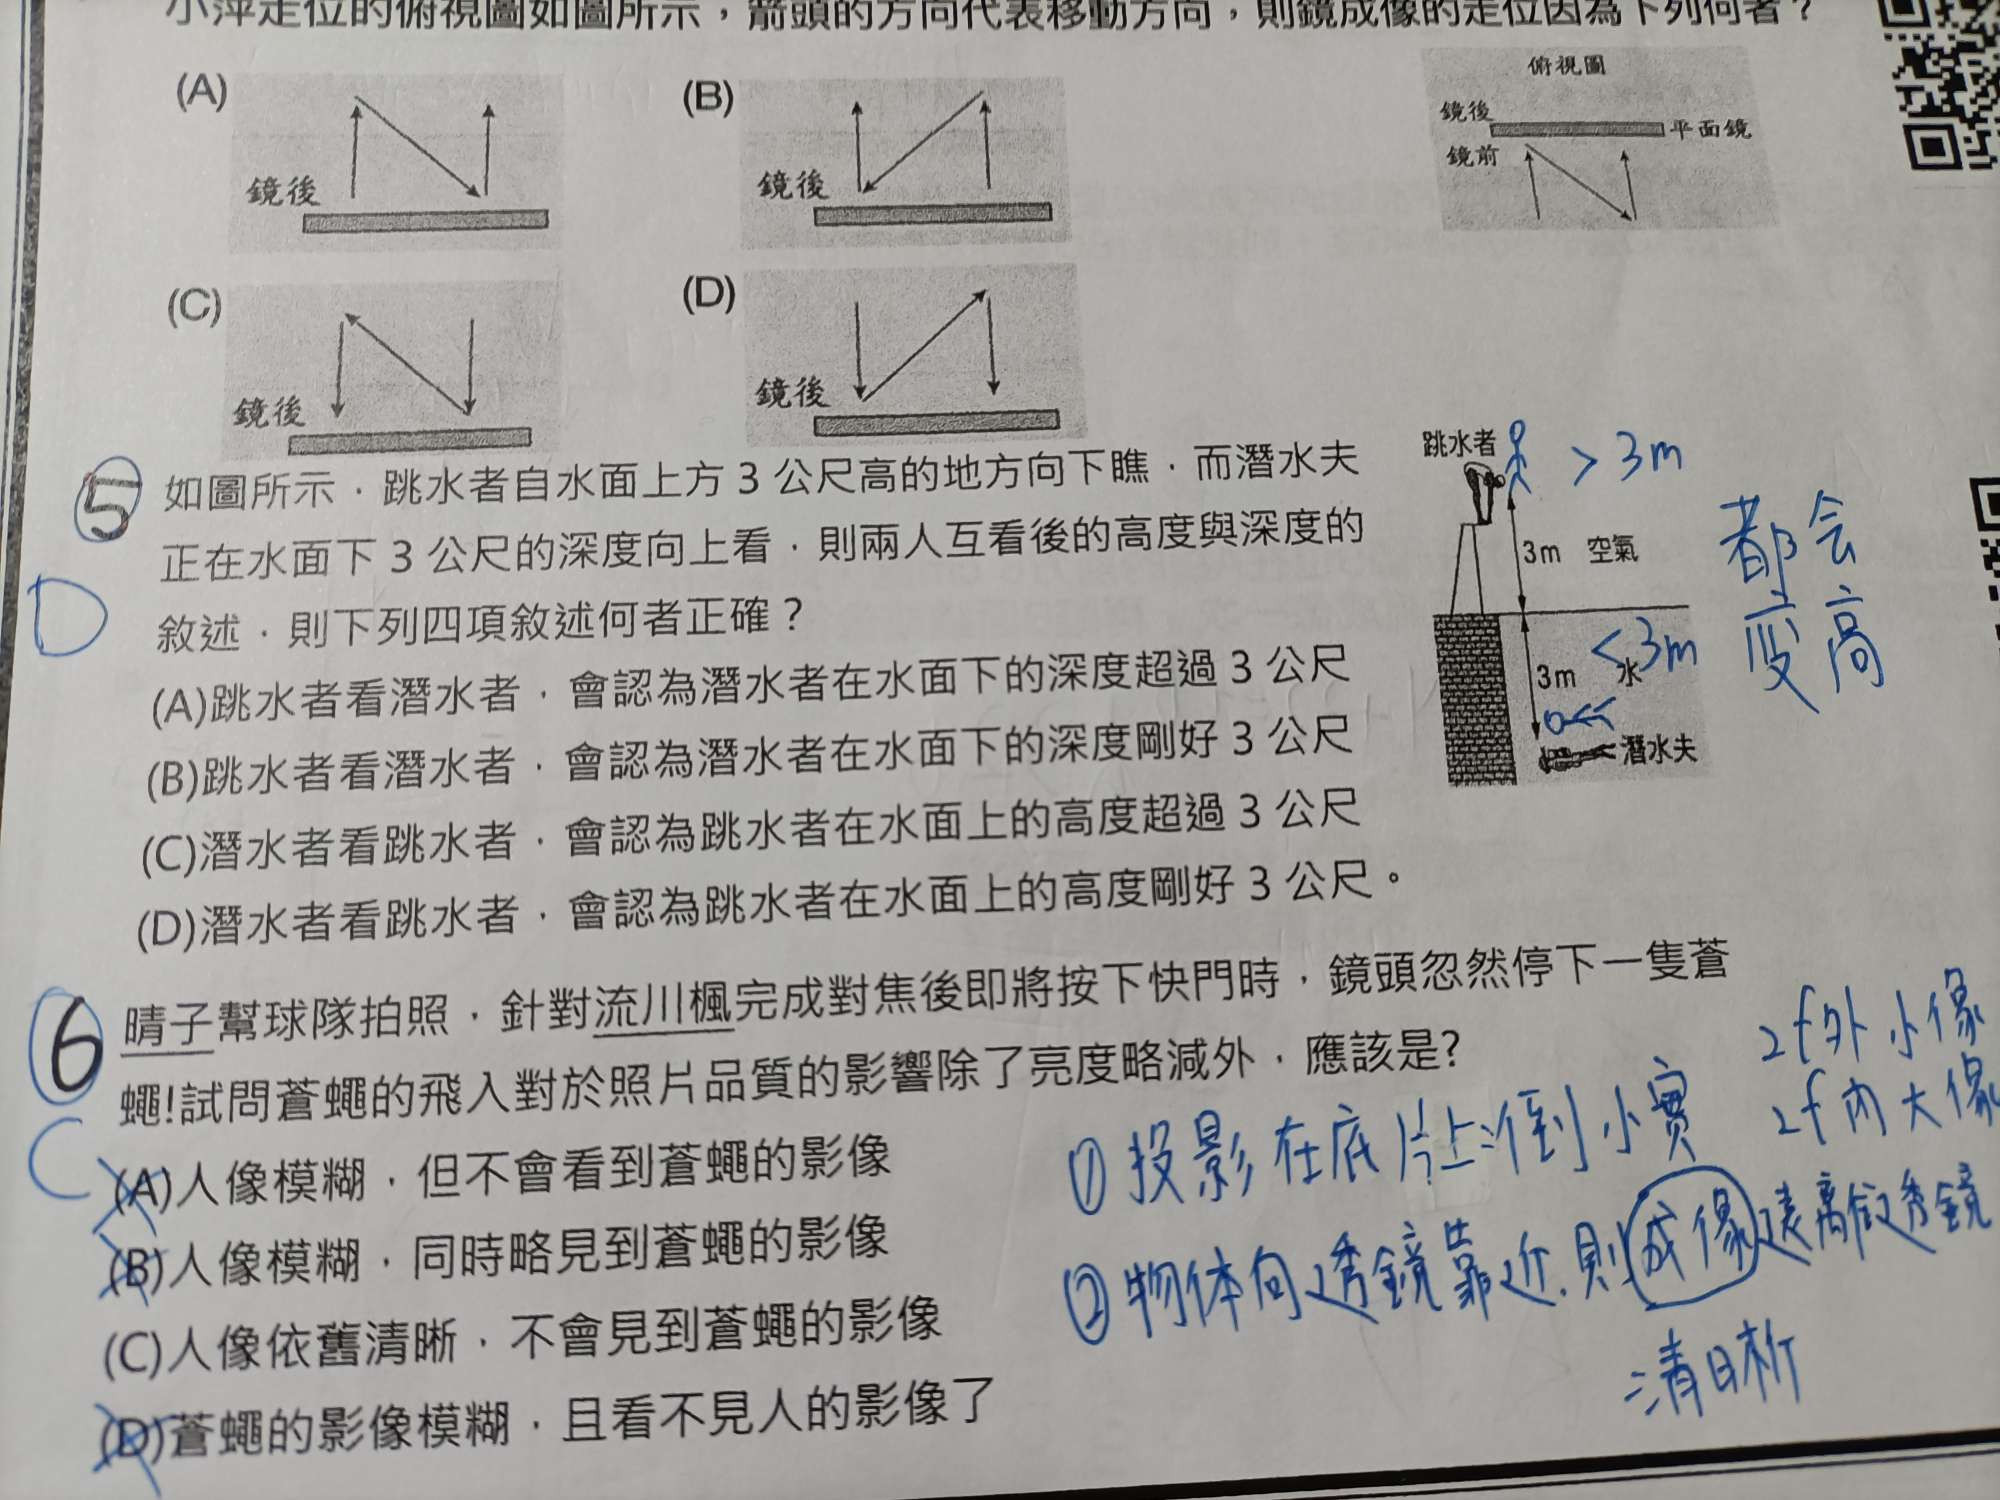 小萍走位的俯視圖如圖所示，箭頭的方向代表移動方向，則鏡成像的走位因為下列何者？
(A)
鏡後
(B)
鏡後
俯視圖
鏡後
平面鏡
鏡前
(C)
鏡後
(D)
鏡後
5 如圖所示，跳水者自水面上方 3 公尺高的地方向下瞧，而潛水夫
正在水面下 3 公尺的深度向上看，則兩人互看後的高度與深度的
敘述，則下列四項敘述何者正確？
D
(A)跳水者看潛水者，會認為潛水者在水面下的深度超過 3 公尺
(B)跳水者看潛水者，會認為潛水者在水面下的深度剛好 3 公尺
(C)潛水者看跳水者，會認為跳水者在水面上的高度超過 3 公尺
(D)潛水者看跳水者，會認為跳水者在水面上的高度剛好 3 公尺。
跳水者
> 3m
3m 空氣
< 3m
3m 水
潛水夫
都会
变高
6 晴子幫球隊拍照，針對流川楓完成對焦後即將按下快門時，鏡頭忽然停下一隻蒼
蠅!試問蒼蠅的飛入對於照片品質的影響除了亮度略減外，應該是?
C
(A)人像模糊，但不會看到蒼蠅的影像
(B)人像模糊，同時略見到蒼蠅的影像
(C)人像依舊清晰，不會見到蒼蠅的影像
(D)蒼蠅的影像模糊，且看不見人的影像了
2f外小像
2f內大像
① 投影在底片上:倒小實
② 物体向透鏡靠近,則成像遠離透鏡
清晰